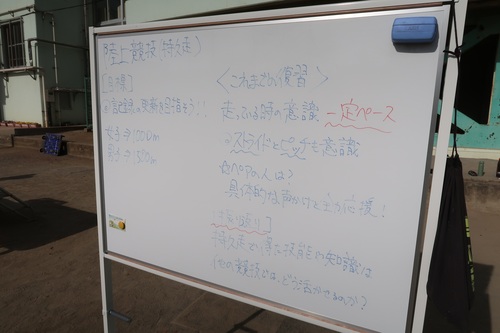 陸上競技(持久走)
[目標]
◎記録の突破を目指そう!!
女子→1000m
男子→1500m
〈これまでの復習〉
走っている時の意識 一定ペース
→ストライドとピッチを意識
☆ペアの人は?
具体的な声かけと全力応援!
[振り返り]
持久走で得た技能や知識は
他の競技では、どう活かせるのか?